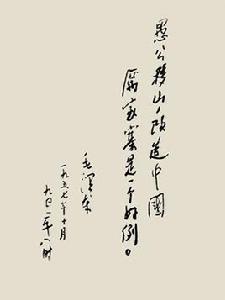 愚公移山，改造中國
厉家寨是一个好例。
毛澤東
一九五七年十月
九日二十八时